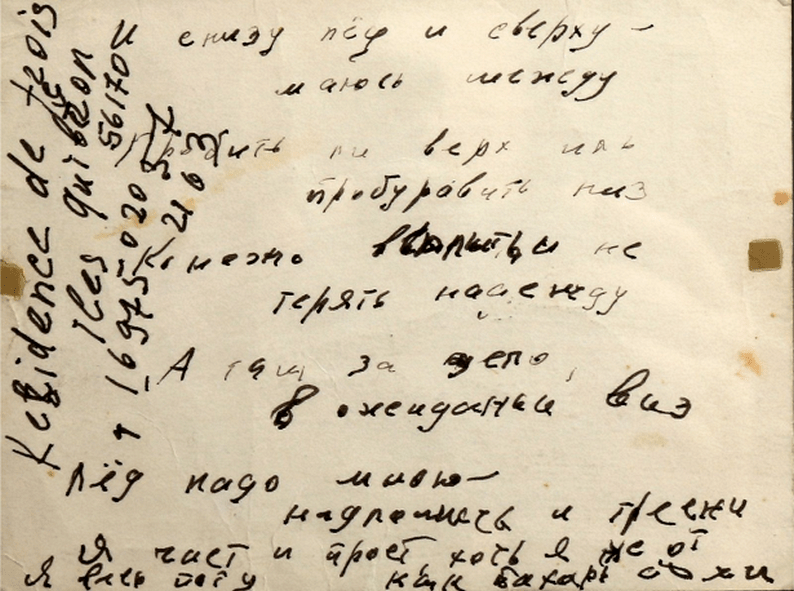 И снизу лёд и сверху —
маюсь между
Пробить ли верх иль
пробуравить низ
Конечно всплыть и не
терять надежду
А там за дело,
В ожиданьи виз
Лёд надо мною —
надломись и тресни
Я чист и прост, хоть я не от
Я весь поту как пахарь сохи
Residence de trois
Iles quibron 56170
2163